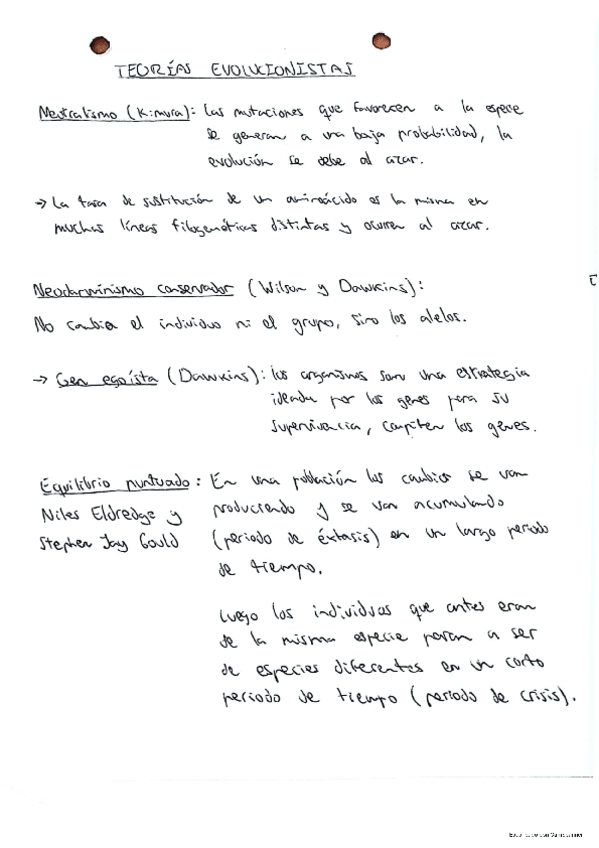 TEORÍAS EVOLUCIONISTAS
Neutralismo (Kimura): Las mutaciones que favorecen a la especie
se generan a una baja probabilidad, la
evolución se debe al azar.
→ La tasa de sustitución de un aminoácido es la misma en
muchas líneas filogenéticas distintas y ocurren al azar.
Neodarwinismo conservador (Wilson y Dawkins):
No cambia el individuo ni el grupo, sino los alelos.
→ Gen egoísta (Dawkins): los organismos son una estrategia
ideada por los genes para su
supervivencia, compiten los genes.
Equilibrio puntuado: En una población los cambios se van
Niles Eldredge y produciendo y se van acumulando
Stephen Jay Gould (periodo de éxtasis) en un largo periodo
de tiempo.
Luego los individuos que antes eran
de la misma especie pasan a ser
de especies diferentes en un corto
periodo de tiempo (periodo de crisis).